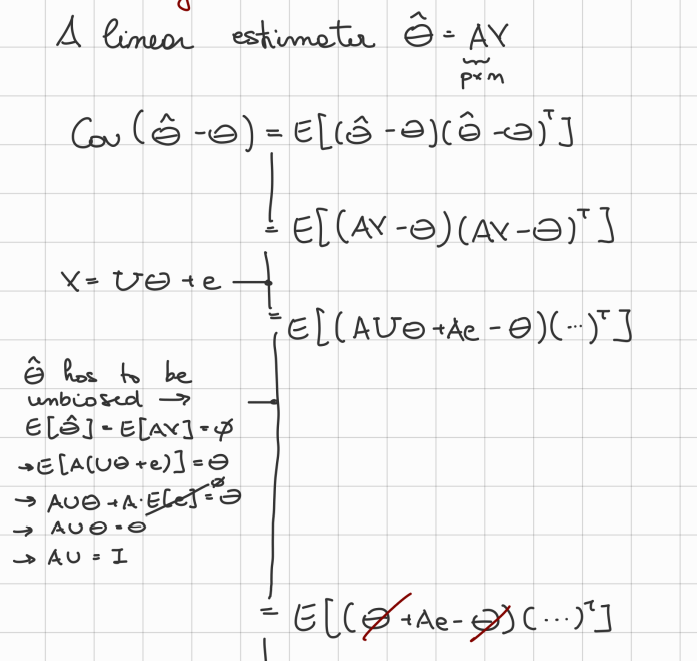 A linear estimater Θ̂ = AY
p×n
Cov(Θ̂ - Θ) = E[(Θ̂ - Θ)(Θ̂ - Θ)ᵀ]
= E[(AY - Θ)(AY - Θ)ᵀ]
Y = UΘ + e
= E[(AUΘ + Ae - Θ)(...)ᵀ]
Θ̂ has to be
unbiosed →
E[Θ̂] = E[AY] = Θ
→ E[A(UΘ + e)] = Θ
→ AUΘ + A·E[e] = Θ
→ AUΘ = Θ
→ AU = I
= E[(Θ + Ae - Θ)(...)ᵀ]